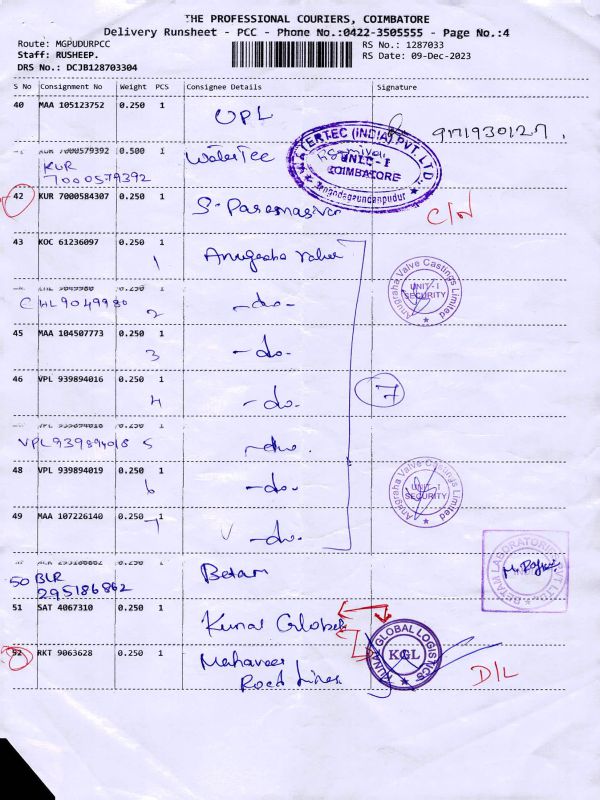 THE PROFESSIONAL COURIERS, COIMBATORE
Delivery Runsheet - PCC - Phone No.:0422-3505555 - Page No.:4
Route: MGPUDURPCC
RS No.: 1287033
Staff: RUSHEEP.
RS Date: 09-Dec-2023
DRS No.: DCJB128703304
S No Consignment No Weight PCS Consignee Details Signature
40 MAA 105123752 0.250 1 UPL
9171930127.
WATERTEC (INDIA) PVT. LTD.
UNIT-I
COIMBATORE
KUR 7000579392 0.500 1 WaterTec
KUR
7000579392
42 KUR 7000584307 0.250 1 S. Paramasivan C/N
43 KOC 61236097 0.250 1 Anugraha Valve
1
Anugraha Valve Castings Limited
UNIT-I
SECURITY
CHL 9049980 0.250 1 -do-
CHL 9049980 2
45 MAA 104507773 0.250 1 -do-
3
46 VPL 939894016 0.250 1 -do-
4
7
VPL 939894018 0.250 1 -do-
VPL939894018 5
48 VPL 939894019 0.250 1 -do-
6
Anugraha Valve Castings Limited
UNIT-I
SECURITY
49 MAA 107226140 0.250 1 -do-
7
BLR 295186862 0.250 1 Betam
50 BLR
295186862
BETAM LABORATORIES PVT LTD.
51 SAT 4067310 0.250 1 Kunal Global
KUNAL GLOBAL LOGISTICS
KGL
52 RKT 9063628 0.250 1 Mahaveer
Road Lines
D/L